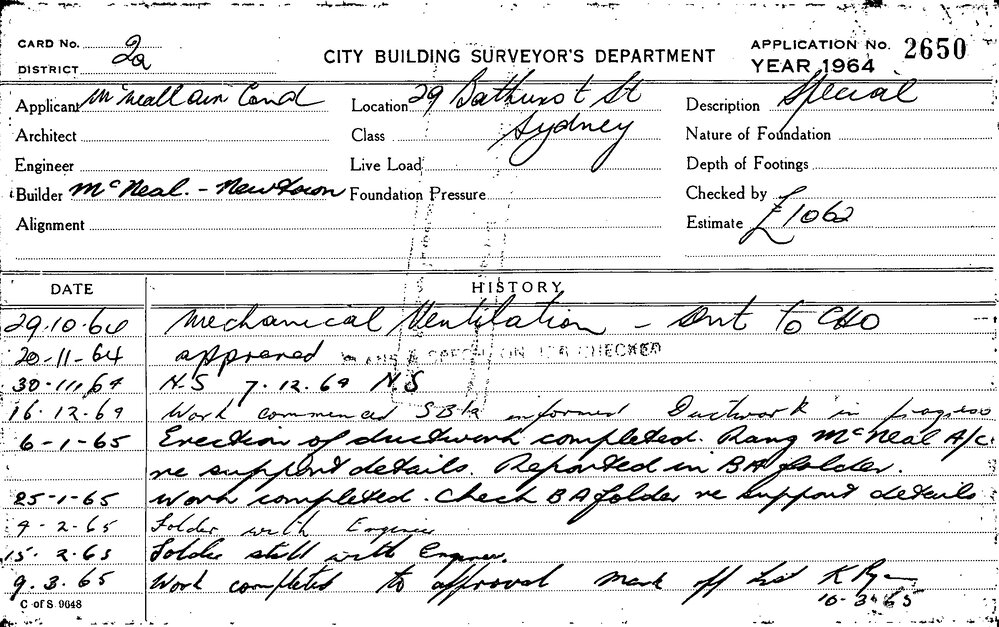 CARD No. 2a
DISTRICT
CITY BUILDING SURVEYOR'S DEPARTMENT
APPLICATION No. 2650
YEAR 1964
Applicant McNeall Air Cond
Location 29 Bathurst St
Sydney
Description Special
Architect
Class
Nature of Foundation
Engineer
Live Load
Depth of Footings
Builder McNeal. - Newtown
Foundation Pressure
Checked by
Alignment
Estimate £1062
DATE HISTORY
29.10.64 Mechanical Ventilation - Sent to CHO
20-11-64 approved
PLANS & SPECIFICATION CHECKED
30-11-64 N.S 7.12.64 N.S
16.12.64 Work commenced informed Ductwork in progress
6-1-65 Erection of ductwork completed. Rang McNeal A/c
re support details. Reported in BA folder.
25-1-65 Work completed. Check BA folder re support details
4-2-65 Folder with Engineer
15.2.65 Folder still with Engineer.
9.3.65 Work completed to approval mark off list K Ryan
10-3-65
C of S. 9648